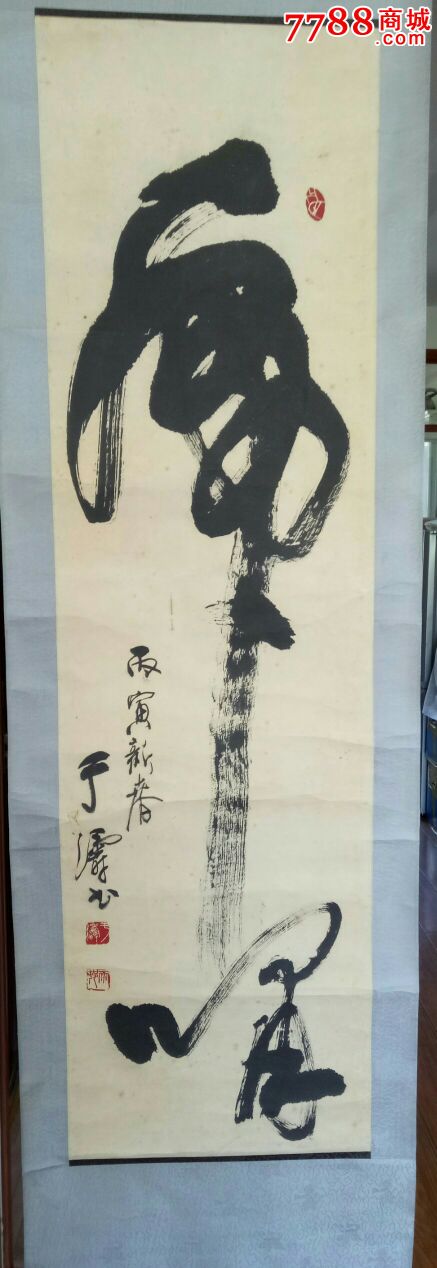 7788商城
.com
虎啸
丙寅新春
于书